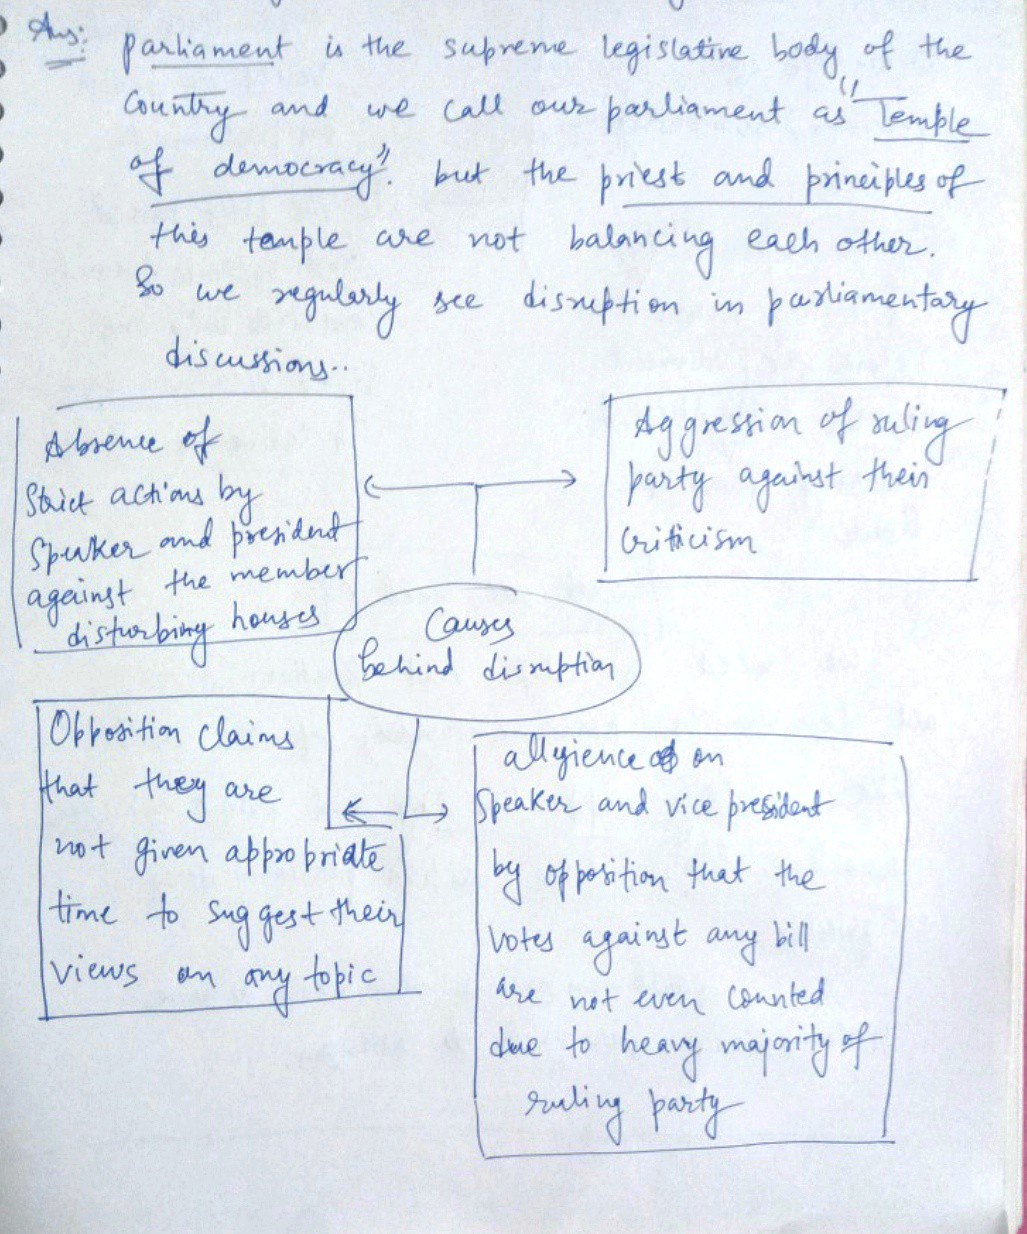 Ans:
parliament is the supreme legislative body of the
Country and we call our parliament as "Temple
of democracy". but the priest and principles of
this temple are not balancing each other.
So we regularly see disruption in parliamentary
discussions..
Absence of
Strict actions by
Speaker and president
against the member
disturbing houses
Aggression of ruling
party against their
criticism
Causes
behind disruption
Opposition claims
that they are
not given appropriate
time to suggest their
views on any topic
allegience on
Speaker and vice president
by opposition that the
votes against any bill
are not even counted
due to heavy majority of
ruling party